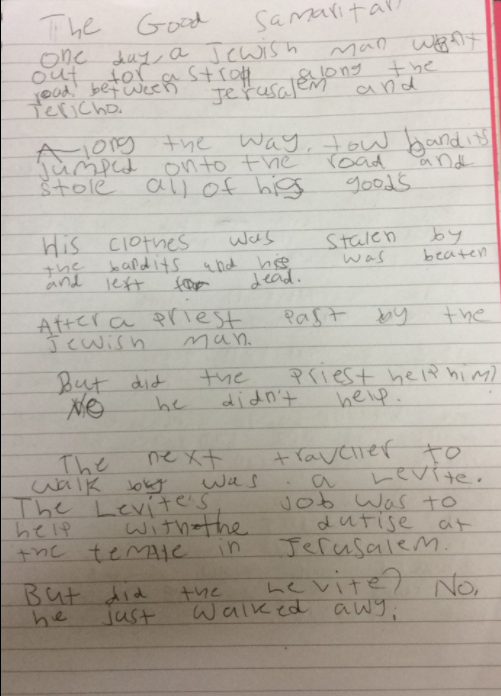 The Good Samaritan
one day, a Jewish man went
out for a stroll along the
road between Jerusalem and
Jericho.
Along the way, tow bandits
jumped onto the road and
stole all of his goods
His clothes was stalen by
the bandits and he was beaten
and left for dead.
After a priest past by the
Jewish man.
But did the Priest help him?
No he didn't help.
The next traveller to
walk by was a Levite.
The Levite's job was to
help with the dutise at
the temple in Jerusalem.
But did the Levite? No,
he just walked awy.